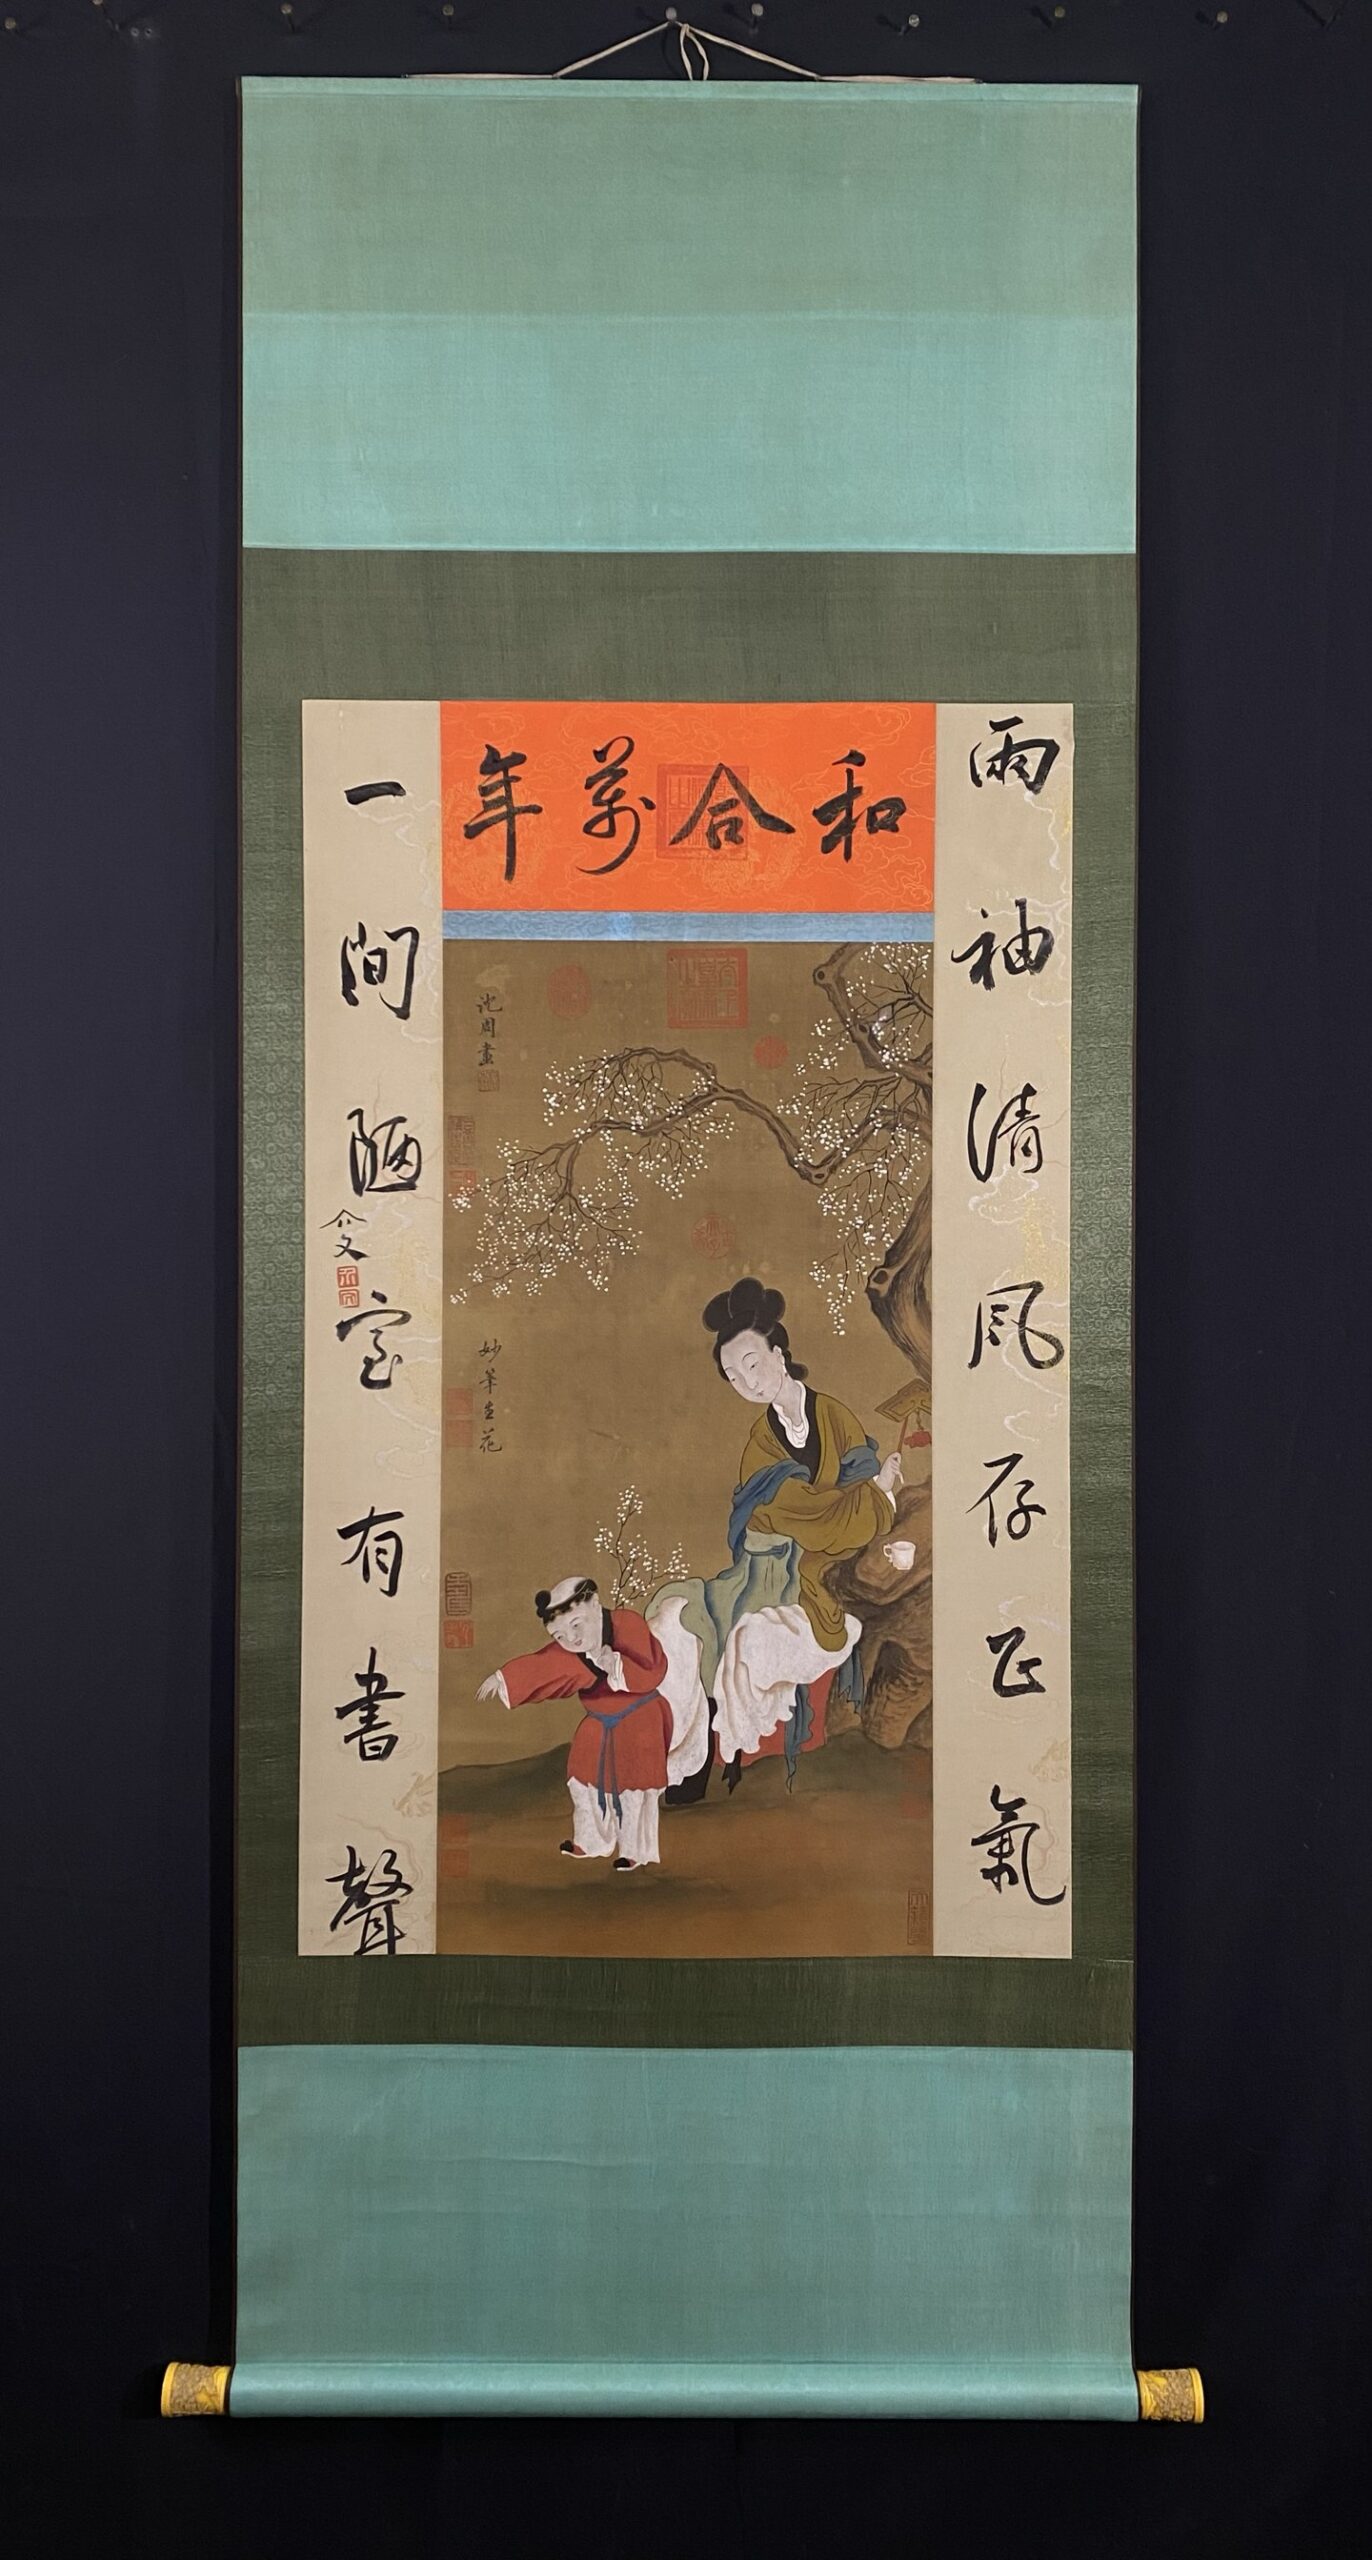 和合萬年
雨袖清風存正氣
一間陋室有書聲
沈周畫
妙筆生花